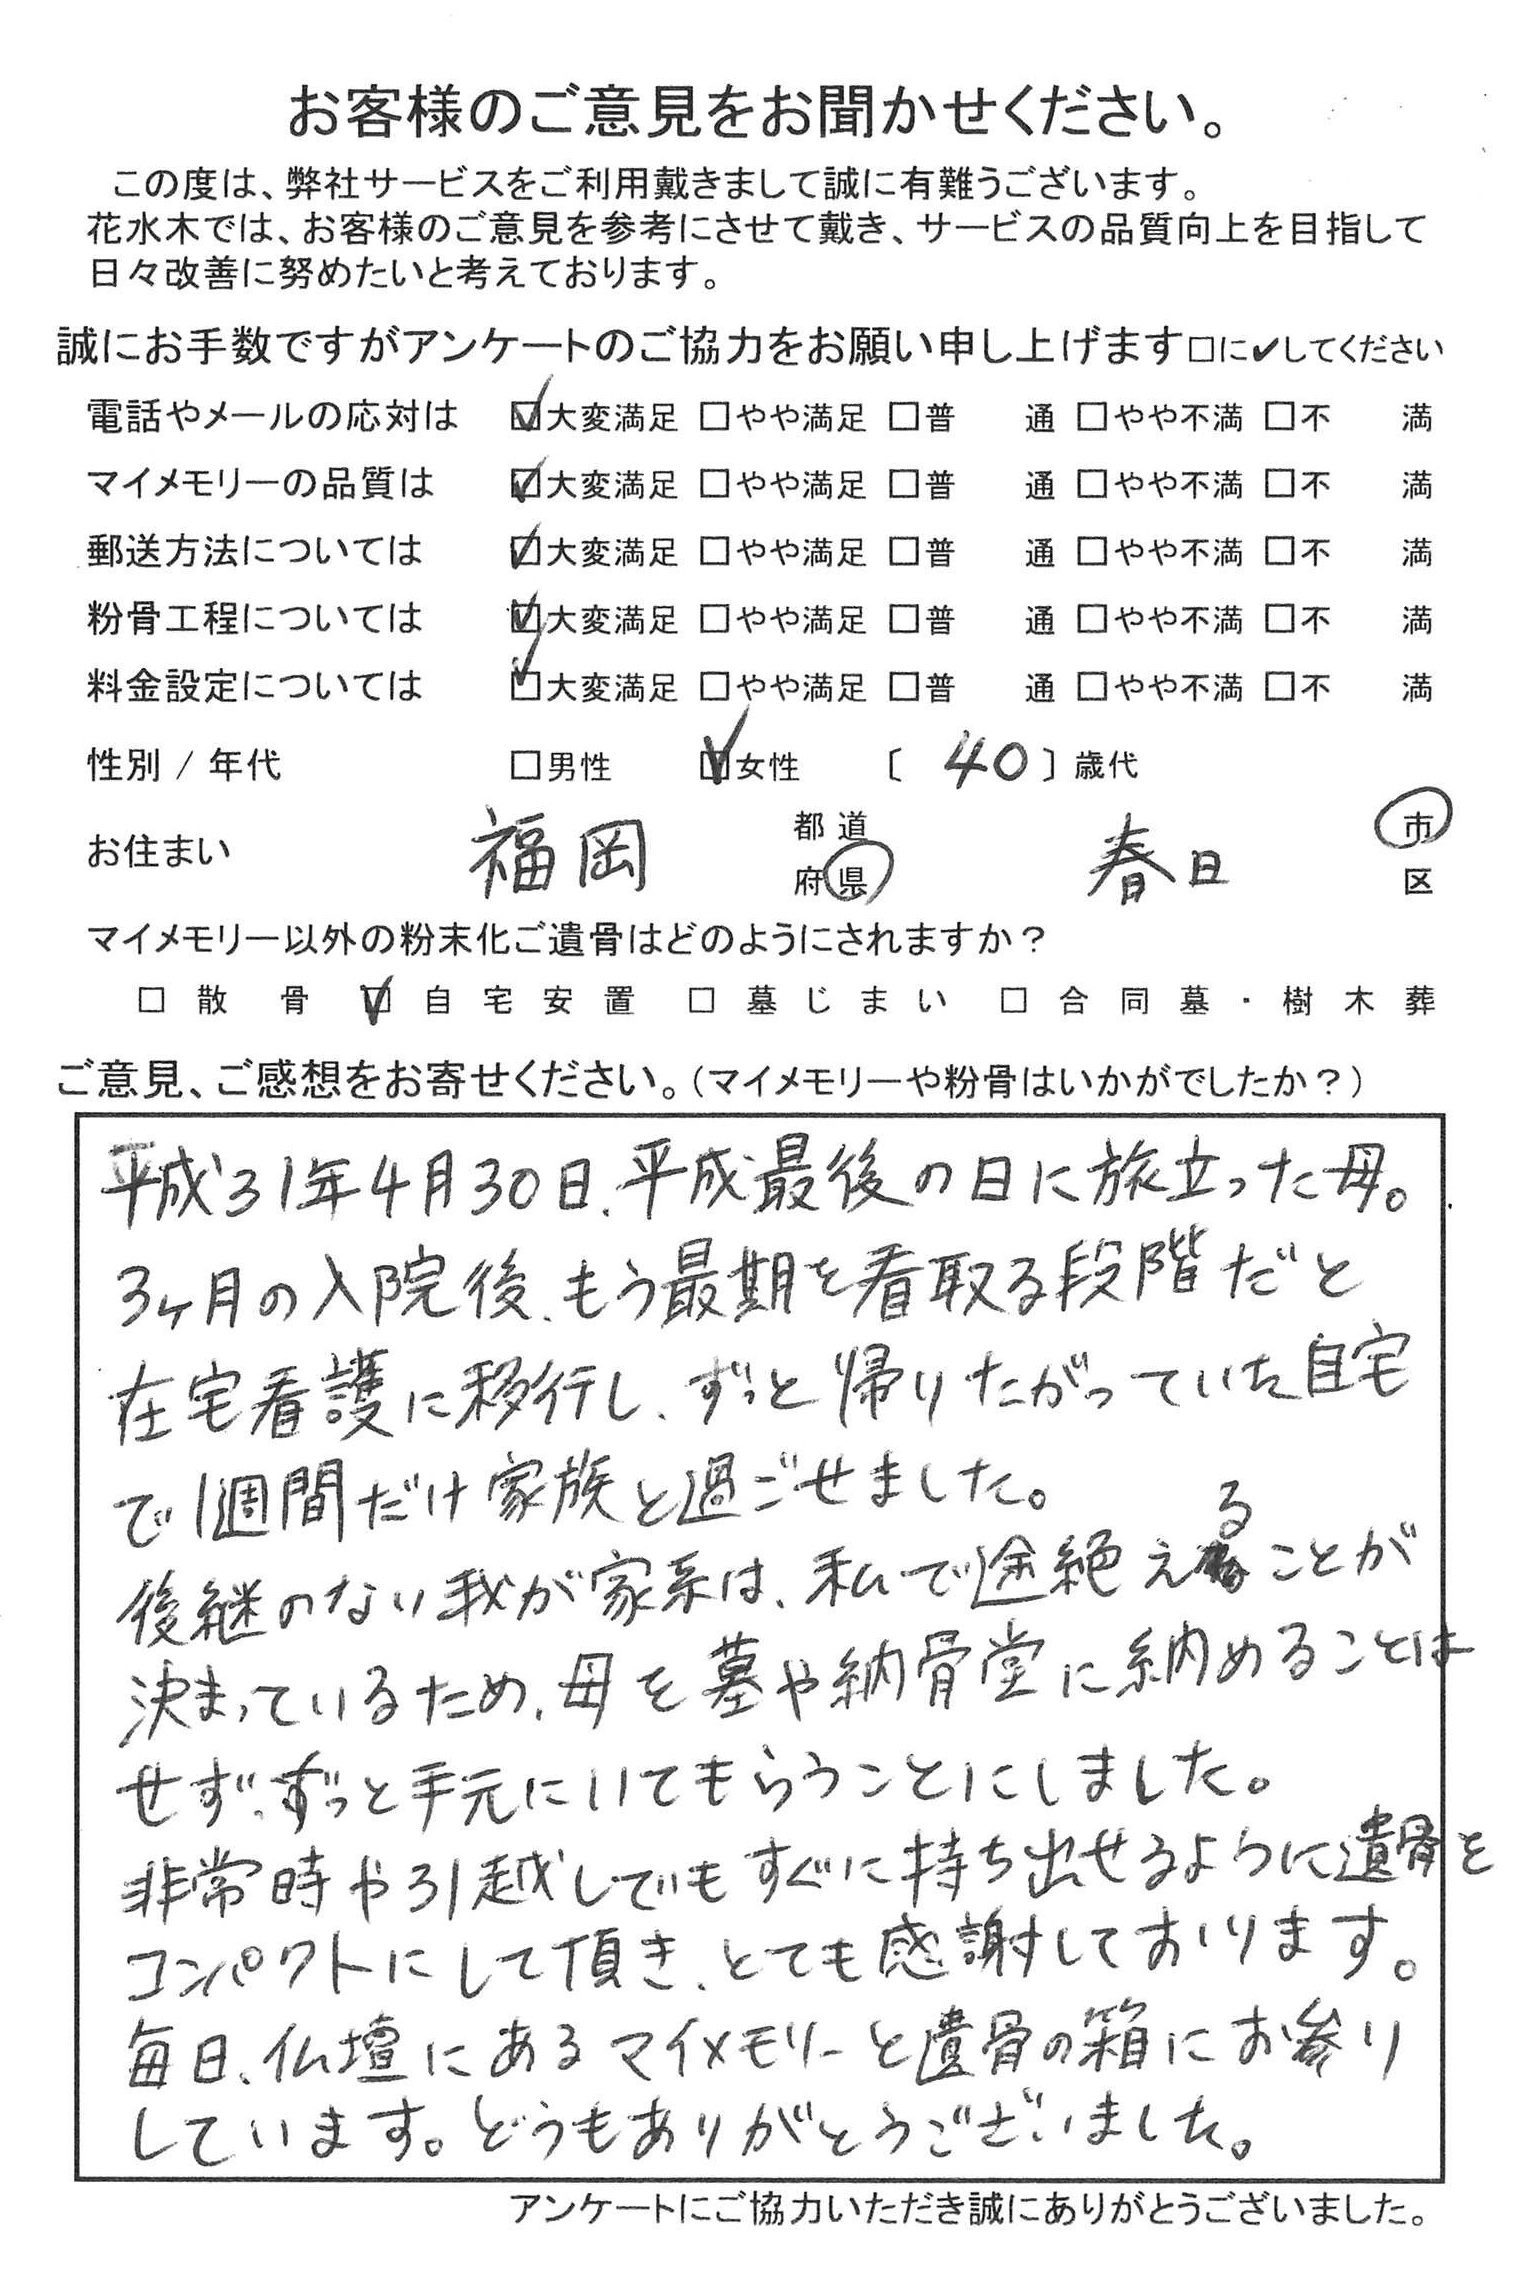 お客様のご意見をお聞かせください。
この度は、弊社サービスをご利用戴きまして誠に有難うございます。
花水木では、お客様のご意見を参考にさせて戴き、サービスの品質向上を目指して
日々改善に努めたいと考えております。
誠にお手数ですがアンケートのご協力をお願い申し上げます□に✔してください
電話やメールの応対は ☑大変満足 □やや満足 □普 通 □やや不満 □不 満
マイメモリーの品質は ☑大変満足 □やや満足 □普 通 □やや不満 □不 満
郵送方法については ☑大変満足 □やや満足 □普 通 □やや不満 □不 満
粉骨工程については ☑大変満足 □やや満足 □普 通 □やや不満 □不 満
料金設定については ☑大変満足 □やや満足 □普 通 □やや不満 □不 満
性別 / 年代 □男性 ☑女性 〔 40 〕歳代
お住まい 福岡 都道府県 春日 市区
マイメモリー以外の粉末化ご遺骨はどのようにされますか？
□ 散骨 ☑ 自宅安置 □ 墓じまい □ 合同墓・樹木葬
ご意見、ご感想をお寄せください。（マイメモリーや粉骨はいかがでしたか？）
平成31年4月30日、平成最後の日に旅立った母。
3ヶ月の入院後、もう最期を看取る段階だと
在宅看護に移行し、ずっと帰りたがっていた自宅
で1週間だけ家族と過ごせました。
後継のない我が家系は、私で途絶えることが
決まっているため、母を墓や納骨堂に納めることは
せず、ずっと手元にいてもらうことにしました。
非常時や引越しでもすぐに持ち出せるように遺骨を
コンパクトにして頂き、とても感謝しております。
毎日、仏壇にあるマイメモリーと遺骨の箱にお参り
しています。どうもありがとうございました。
アンケートにご協力いただき誠にありがとうございました。